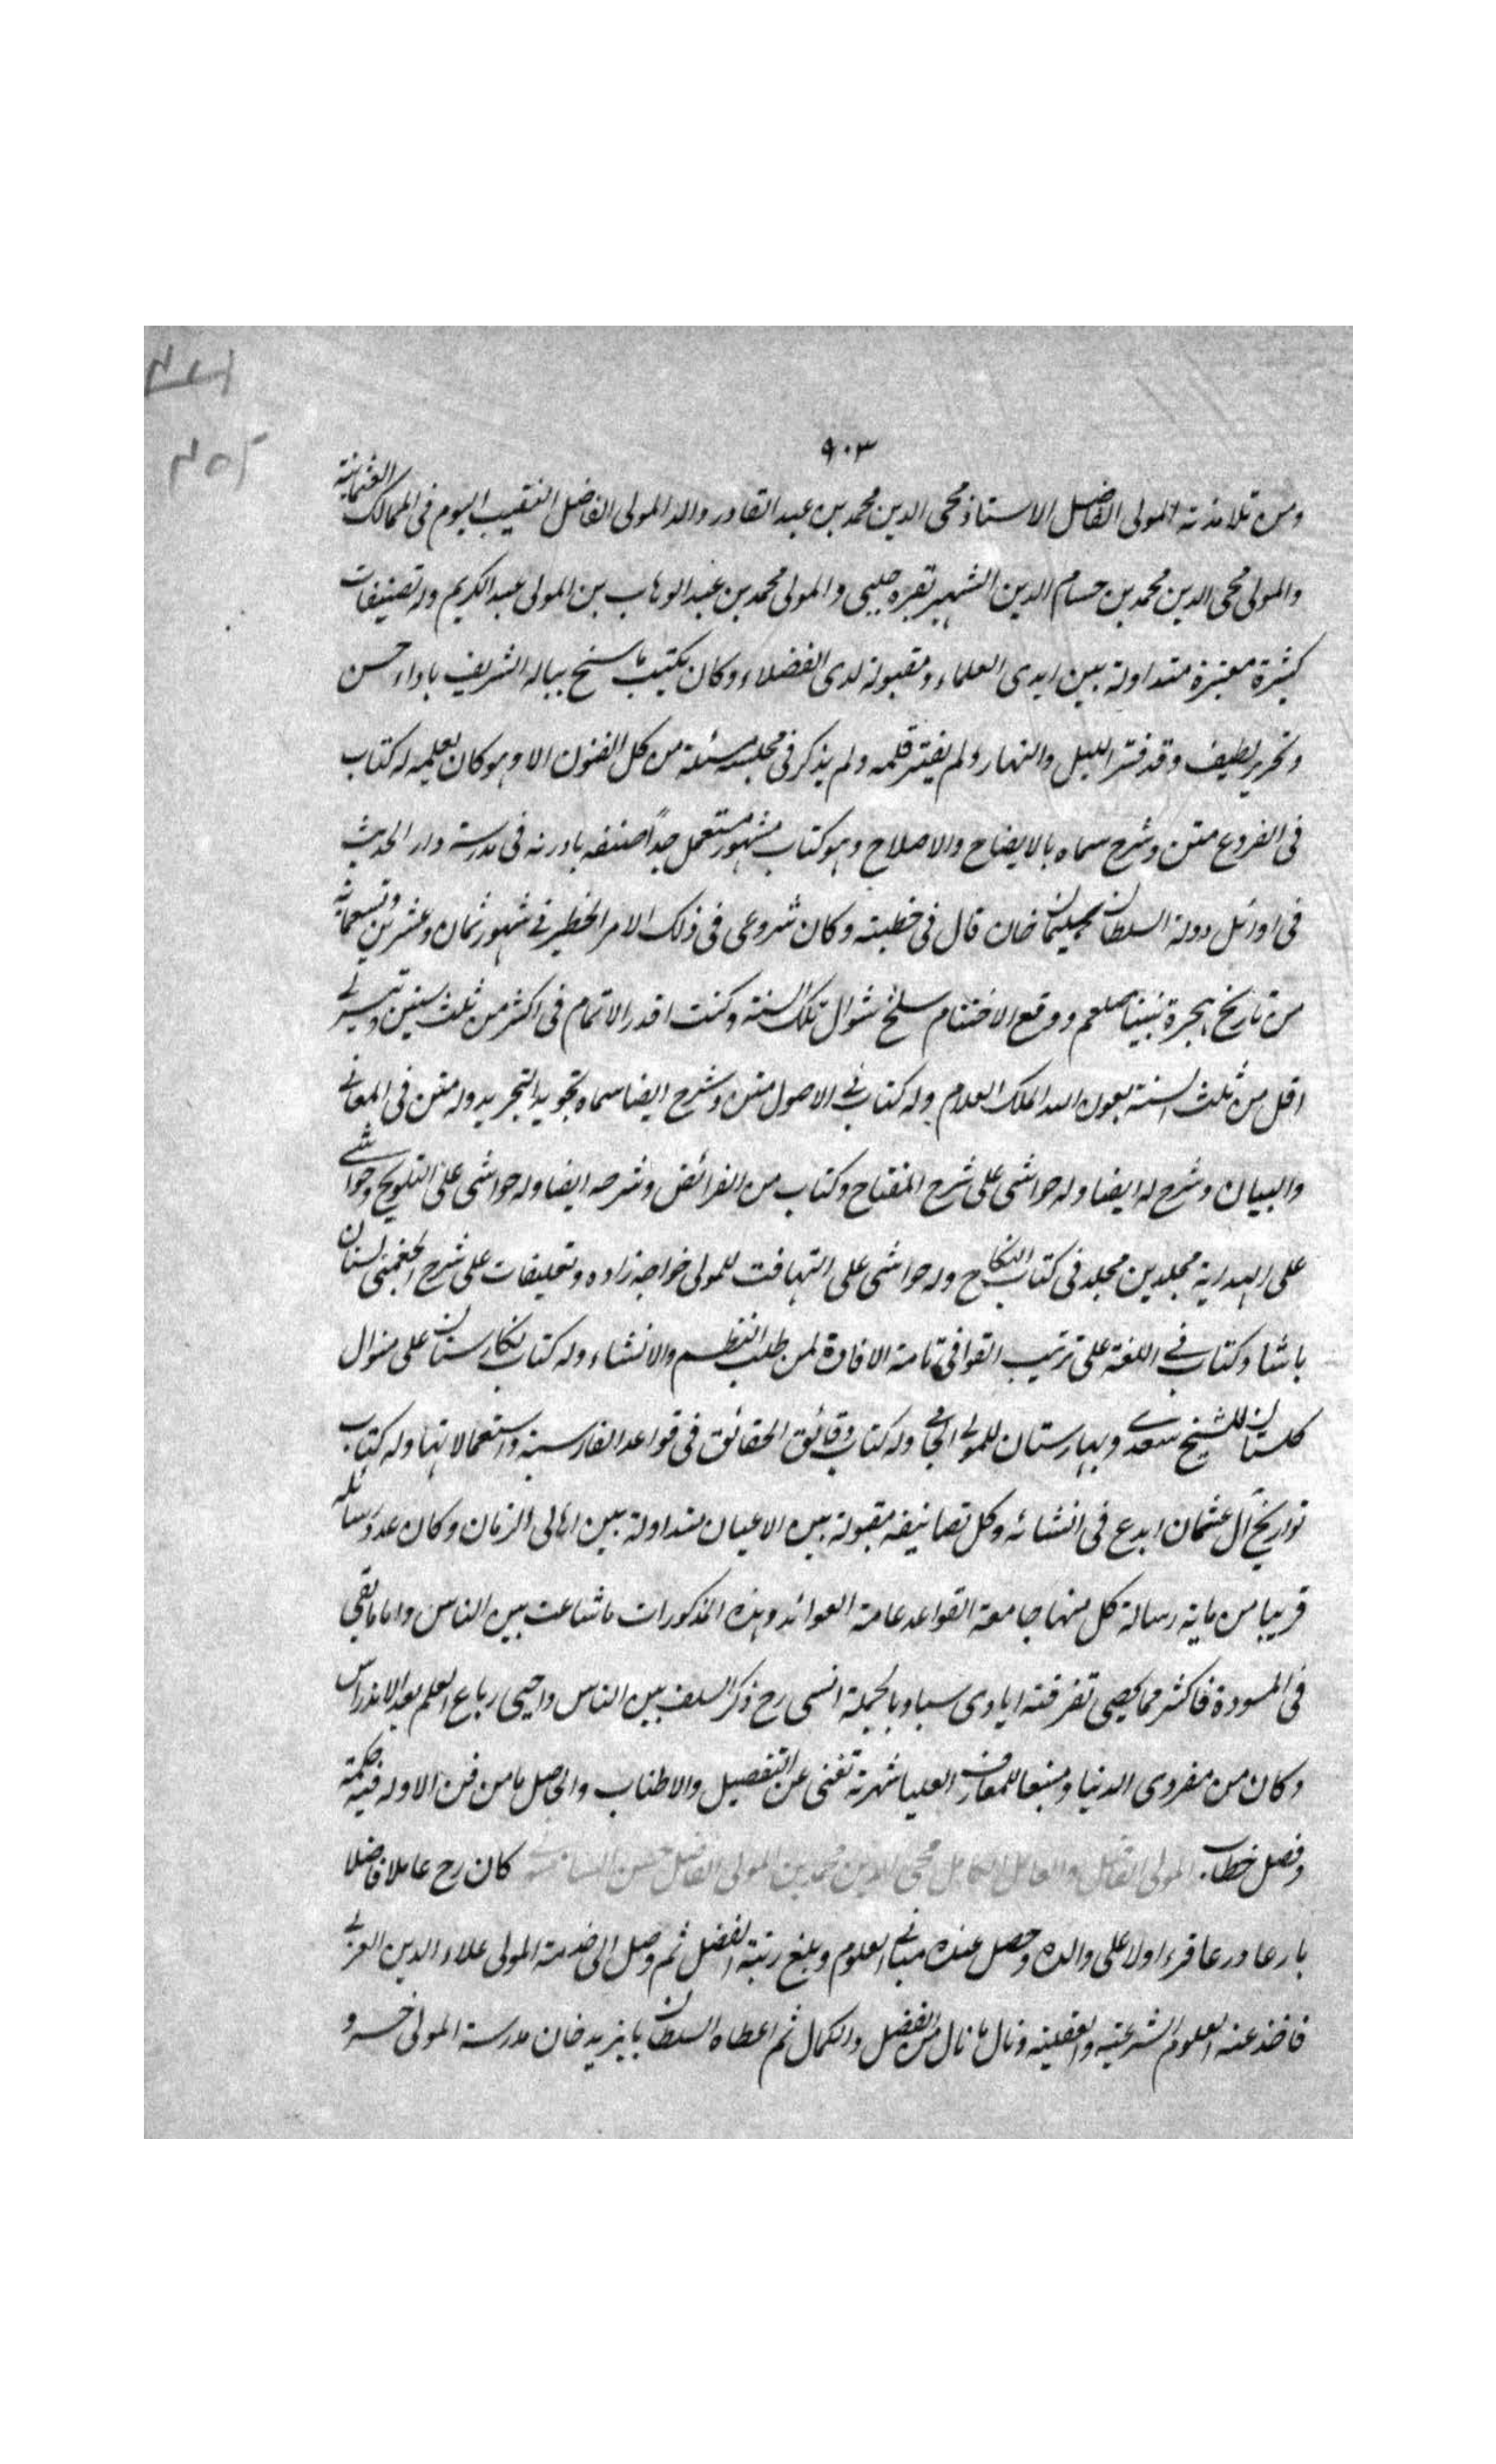 ٩٠٣
ومن تلامذته المولى الفاضل الاستاذ محى الدين محمد بن عبد القادر والد المولى الفاضل النقيب اليوم فى الممالك العثمانية
والمولى محى الدين محمد بن حسام الدين الشهير بقره جلبى والمولى محمد بن عبد الوهاب بن المولى عبد الكريم وله تصنيفات
كثيرة معتبرة متداولة بين ايدى العلماء ومقبولة لدى الفضلاء وكان يكتب ما سنح بباله الشريف باداء حسن
وتحرير لطيف وقد فتر الليل والنهار ولم يفتر قلمه ولم يذكر فى مجلسه مسئلة من كل الفنون الا وهو كان يعلمه له كتاب
فى الفروع متن وشرح سماه بالايضاح والاصلاح وهو كتاب مشهور مستعمل جداً صنفه بادرنه فى مدرسة دار الحديث
فى اوائل دولة السلطان سليمان خان قال فى خطبته وكان شروعى فى ذلك الامر الخطير فى شهور ثمان وعشرين وتسعمائة
من تاريخ هجرة نبينا صلعم ووقع الاختتام سلخ شوال تلك السنة وكنت اقدر الاتمام فى اكثر من ثلث سنين وتيسر لى
اقل من ثلث السنة بعون الله الملك العلام وله كتاب فى الاصول متن وشرح ايضا سماه تجويد التجريد وله متن فى المعانى
والبيان وشرح له ايضا وله حواشى على شرح المفتاح وكتاب من الفرائض وشرحه ايضا وله حواشى على التلويح وحواشى
على الهداية مجلدين مجلد فى كتاب النكاح وله حواشى على التهافت للمولى خواجه زاده وتعليقات على شرح الجغمينى لسنان
باشا وكتاب فى اللغة على ترتيب القوافى تامة الافادة لمن طلب النظم والانشاء وله كتاب نكارستان على منوال
كلستان للشيخ سعدى وبهارستان للمولى الجامى وله كتاب دقائق الحقائق فى قواعد الفارسية واستعمالاتها وله كتاب
تواريخ آل عثمان ابدع فى انشائه وكل تصانيفه مقبولة بين الاعيان متداولة بين اهالى الزمان وكان عدد رسائله
قريبا من ماية رسالة كل منها جامعة القواعد عامة العوائد وهذه المذكورات ما شاعت بين الناس واما ما بقى
فى المسودة فاكثر مما يحصى تفرقته ايادى سبا وبالجملة انسى رح ذكر السلف بين الناس واحيى رباع العلم بعد الاندراس
وكان من مفردى الدنيا ومنبعا للمعارف العليا شهرته تغنى عن التفصيل والاطناب والحاصل ما من فن الا وله فيه حكمة
وفصل خطاب المولى الفاضل والعامل الكامل محى الدين محمد بن المولى الفاضل حسن السامسونى كان رح عاملا فاضلا
بارعا ورعا قرء اولا على والده وحصل عنده مبانى العلوم وبلغ رتبة الفضل ثم وصل الى خدمة المولى علاء الدين العربى
فاخذ عنه العلوم الشرعية والعقلية ونال ما نال من الفضل والكمال ثم اعطاه السلطان بايزيد خان مدرسة المولى خسرو